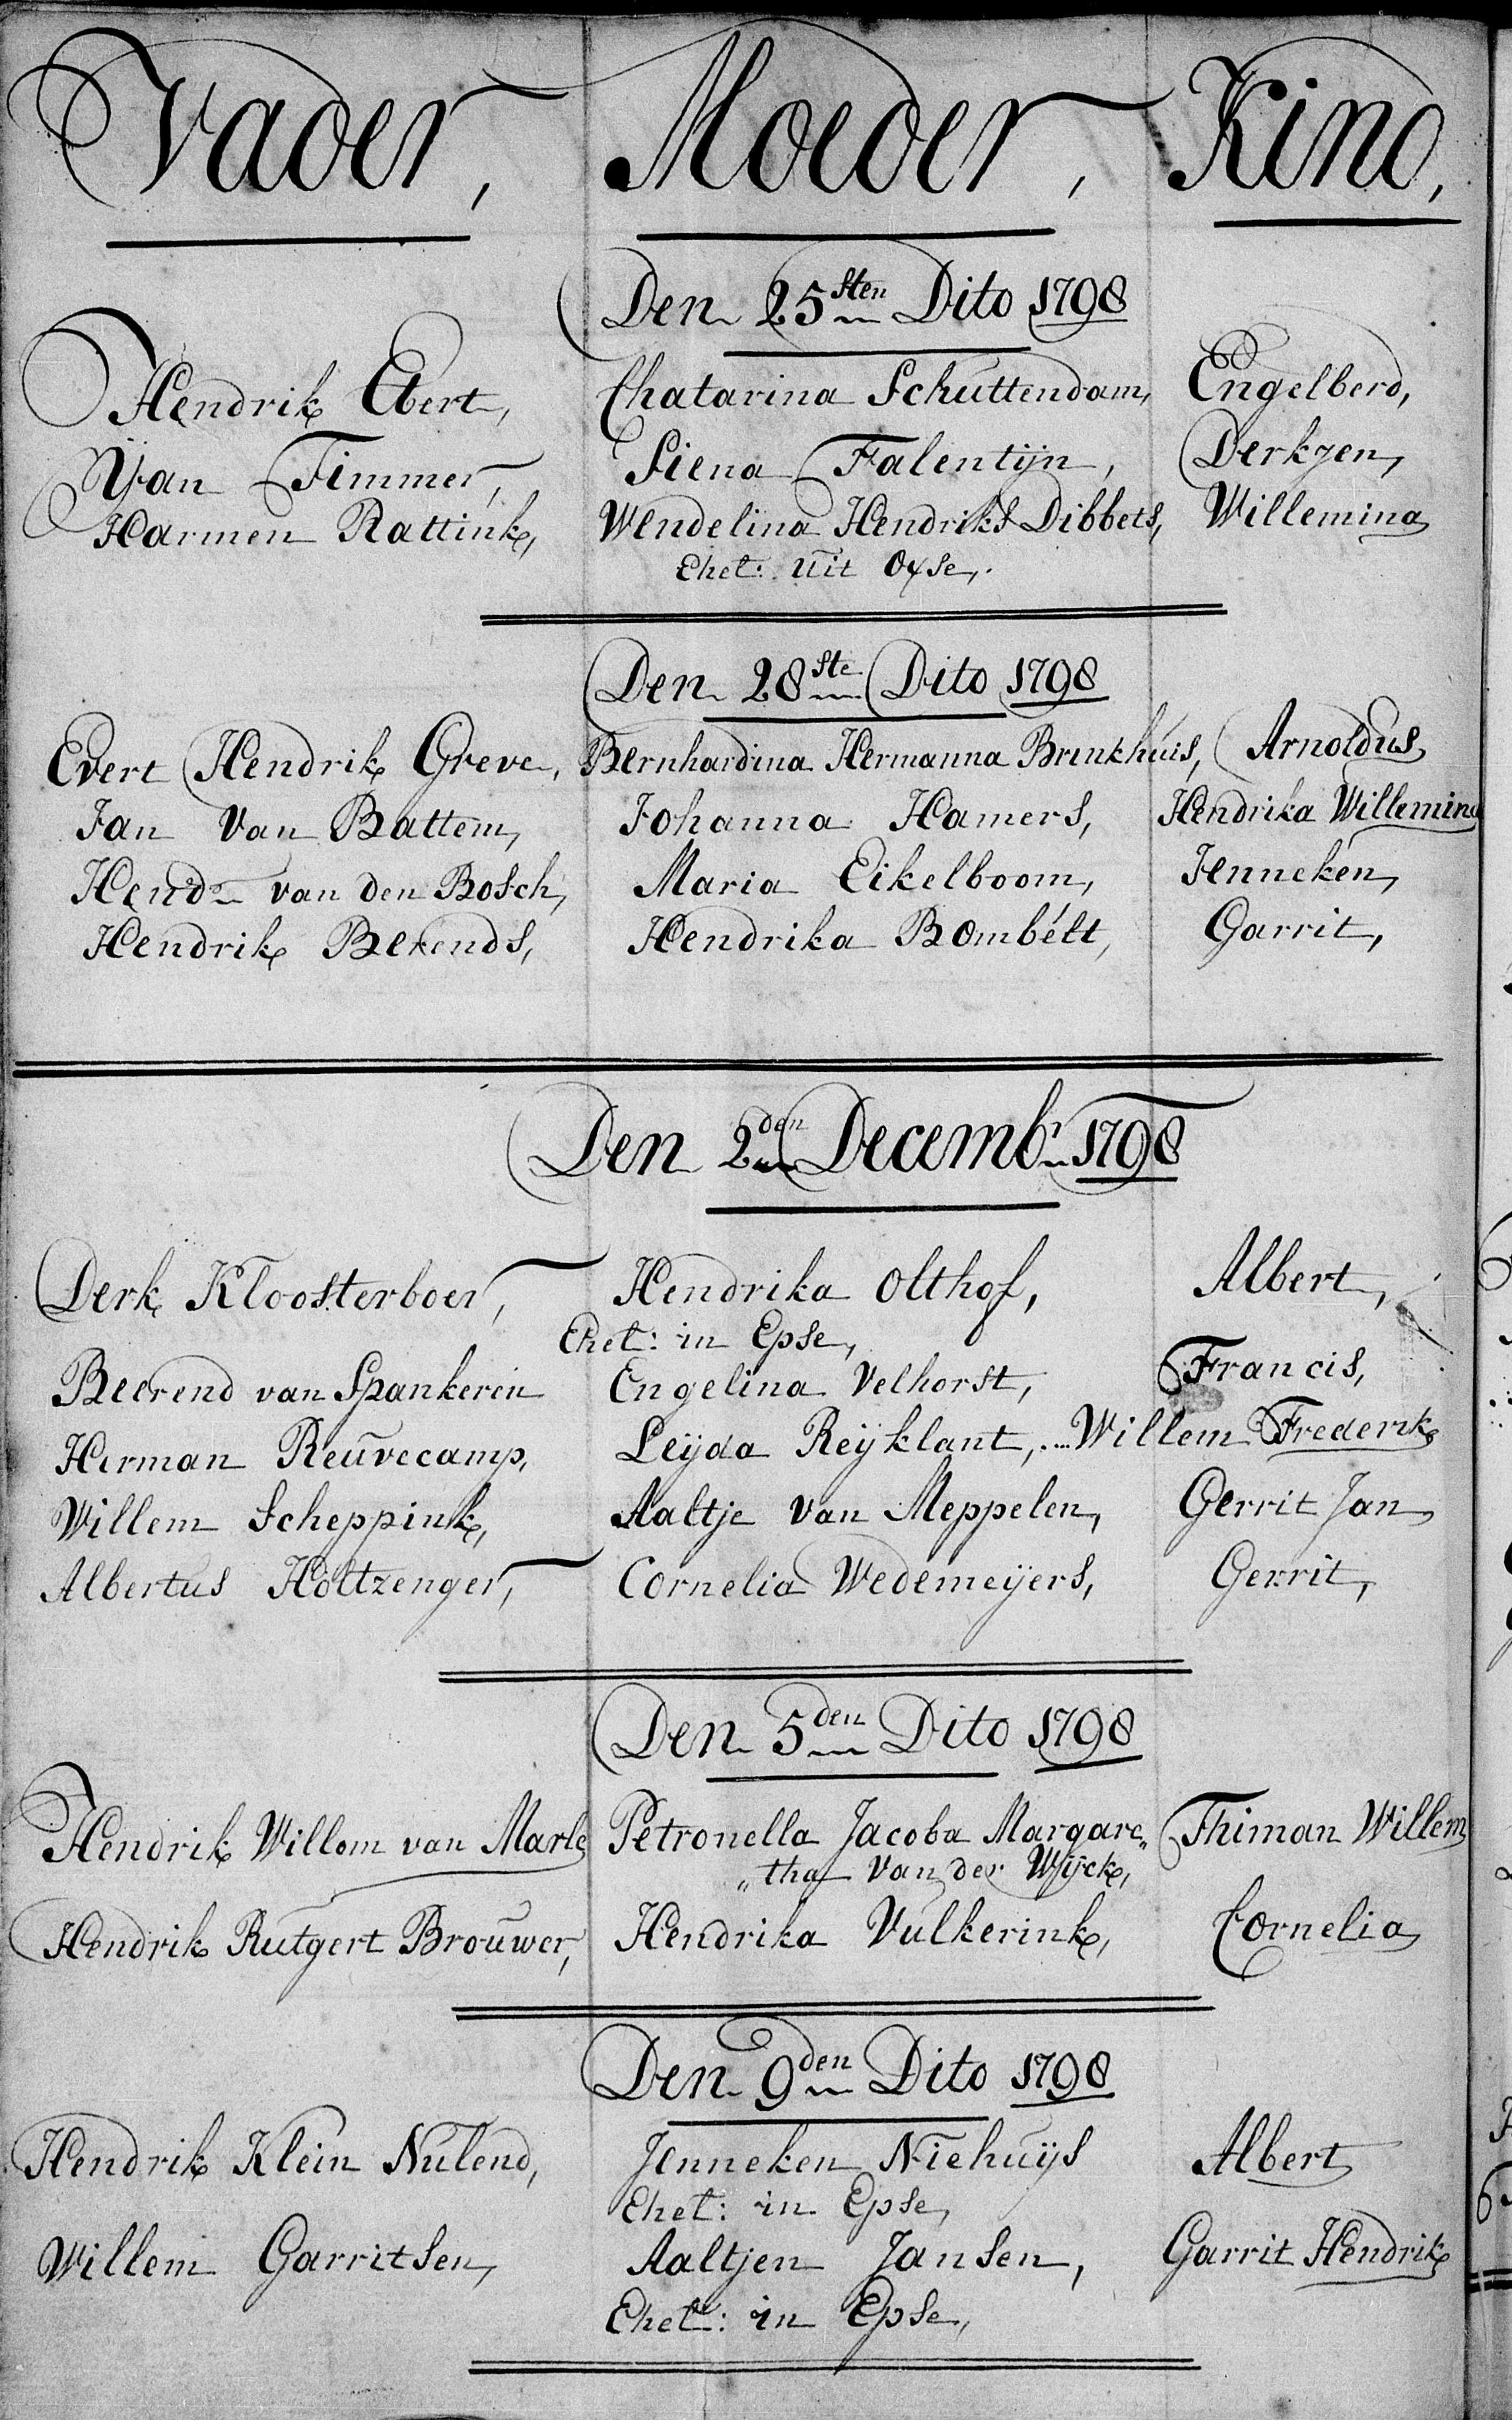 Vader, Moeder, Kind,
Den 25sten Dito 1798
Hendrik Ebert, Chatarina Schuttendam, Engelberd,
Yan Timmer, Siena Falentijn, Derkjen,
Harmen Rattink, Wendelina Hendriks Dibbets, Willemina
Ehel: uit Oxse,.
Den 28ste Dito 1798
Evert Hendrik Greve, Bernhardina Hermanna Brinkhuis, Arnoldus
Jan Van Battem, Johanna Hamers, Hendrika Willemina
Hendk van den Bosch, Maria Eikelboom, Jenneken,
Hendrik Berends, Hendrika Bombélt, Garrit,
Den 2den Decembr 1798
Derk Kloosterboer, Hendrika Olthof, Albert,
Ehel: in Epse,
Beerend van Spankeren Engelina Velhorst, Francis,
Herman Reuvecamp, Leijda Reijklant, Willem Frederik
Willem Scheppink, Aaltje van Meppelen, Gerrit Jan
Albertus Höltzenger, Cornelia Wedemeijers, Gerrit,
Den 5den Dito 1798
Hendrik Willem van Marle Petronella Jacoba Margare„ Thiman Willem
„tha Van der Wijck,
Hendrik Rutgert Brouwer, Hendrika Vulkerink, Cornelia
Den 9den Dito 1798
Hendrik Klein Nulend, Jenneken Niehuijs Albert
Ehel: in Epse,
Willem Garritsen, Aaltjen Jansen, Garrit Hendrik
Ehel: in Epse,